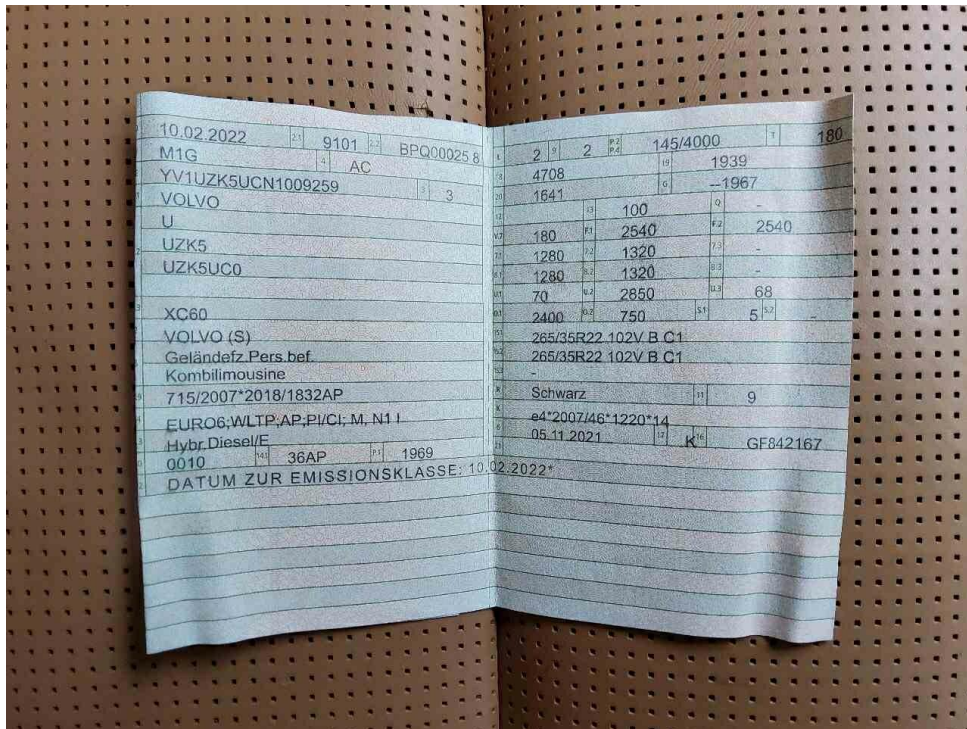 10.02.2022 2.1 9101 2.2 BPQ00025 8
M1G 4 AC
YV1UZK5UCN1009259 3 3
VOLVO
U
UZK5
UZK5UC0
XC60
VOLVO (S)
Geländefz.Pers.bef.
Kombilimousine
715/2007*2018/1832AP
EURO6;WLTP;AP;PI/CI; M, N1 I
Hybr.Diesel/E
0010 14.1 36AP P.1 1969
DATUM ZUR EMISSIONSKLASSE: 10.02.2022*
L 2 9 2 P.2 P.4 145/4000 T 180
18 4708 19 1939
20 1641 G --1967
12 13 100 Q -
V.7 180 F.1 2540 F.2 2540
7.1 1280 7.2 1320 7.3 -
8.1 1280 8.2 1320 8.3 -
U.1 70 U.2 2850 U.3 68
O.1 2400 O.2 750 S.1 5 S.2 -
15.1 265/35R22 102V B C1
15.2 265/35R22 102V B C1
15.3 -
R Schwarz 11 9
K e4*2007/46*1220*14
6 05.11.2021 17 K 16 GF842167
21